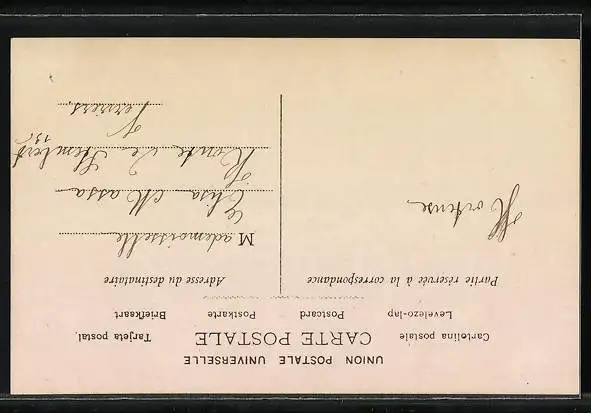 UNION POSTALE UNIVERSELLE
CARTE POSTALE
Cartolina postale
Tarjeta postal.
Levelezo-lap
Postcard
Postkarte
Briefkaart
Partie réservée à la correspondance
Adresse du destinataire
Hortense
Mademoiselle
Elisa Massa
Route de Stembert
Verviers.